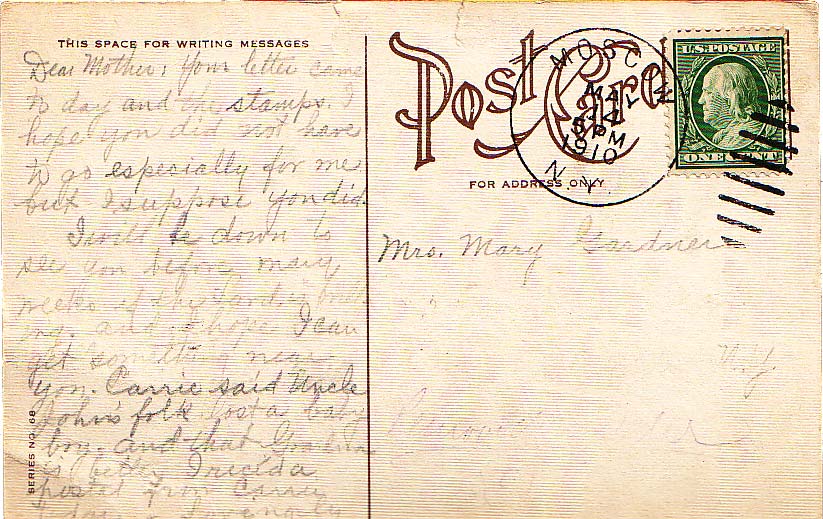 THIS SPACE FOR WRITING MESSAGES
Dear Mother; Your letter came
to day and the stamps. I
hope you did not have
to go especially for me
but I suppose you did.
I will be down to
see you before many
weeks if the Lord is
ing. and I hope I can
get something near
you. Carrie said Uncle
John's folk lost a baby
boy. and that Grandma
is better I rec'd a
postal from Carrie
Post Card
FOR ADDRESS ONLY
MOSCOW
MAY
5 PM
1910
N.Y.
U.S. POSTAGE
ONE CENT
Mrs. Mary Gardner
N.Y.
SERIES NO. 68